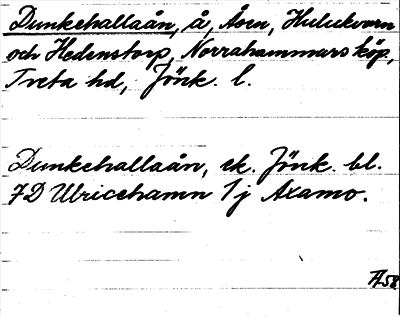 Dunkehallaån, å, Åsen, Hulukvarn
och Hedenstorp, Norrahammars köp,
Tveta hd, Jönk. l.
Dunkehallaån, ek. Jönk. bl.
7D Ulricehamn 1j Axamo.
Fl58